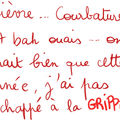 ièvre... Courbature
A bah ouais... on
nait bien que cette
née, j'ai pas
échappé à la GRIPPE